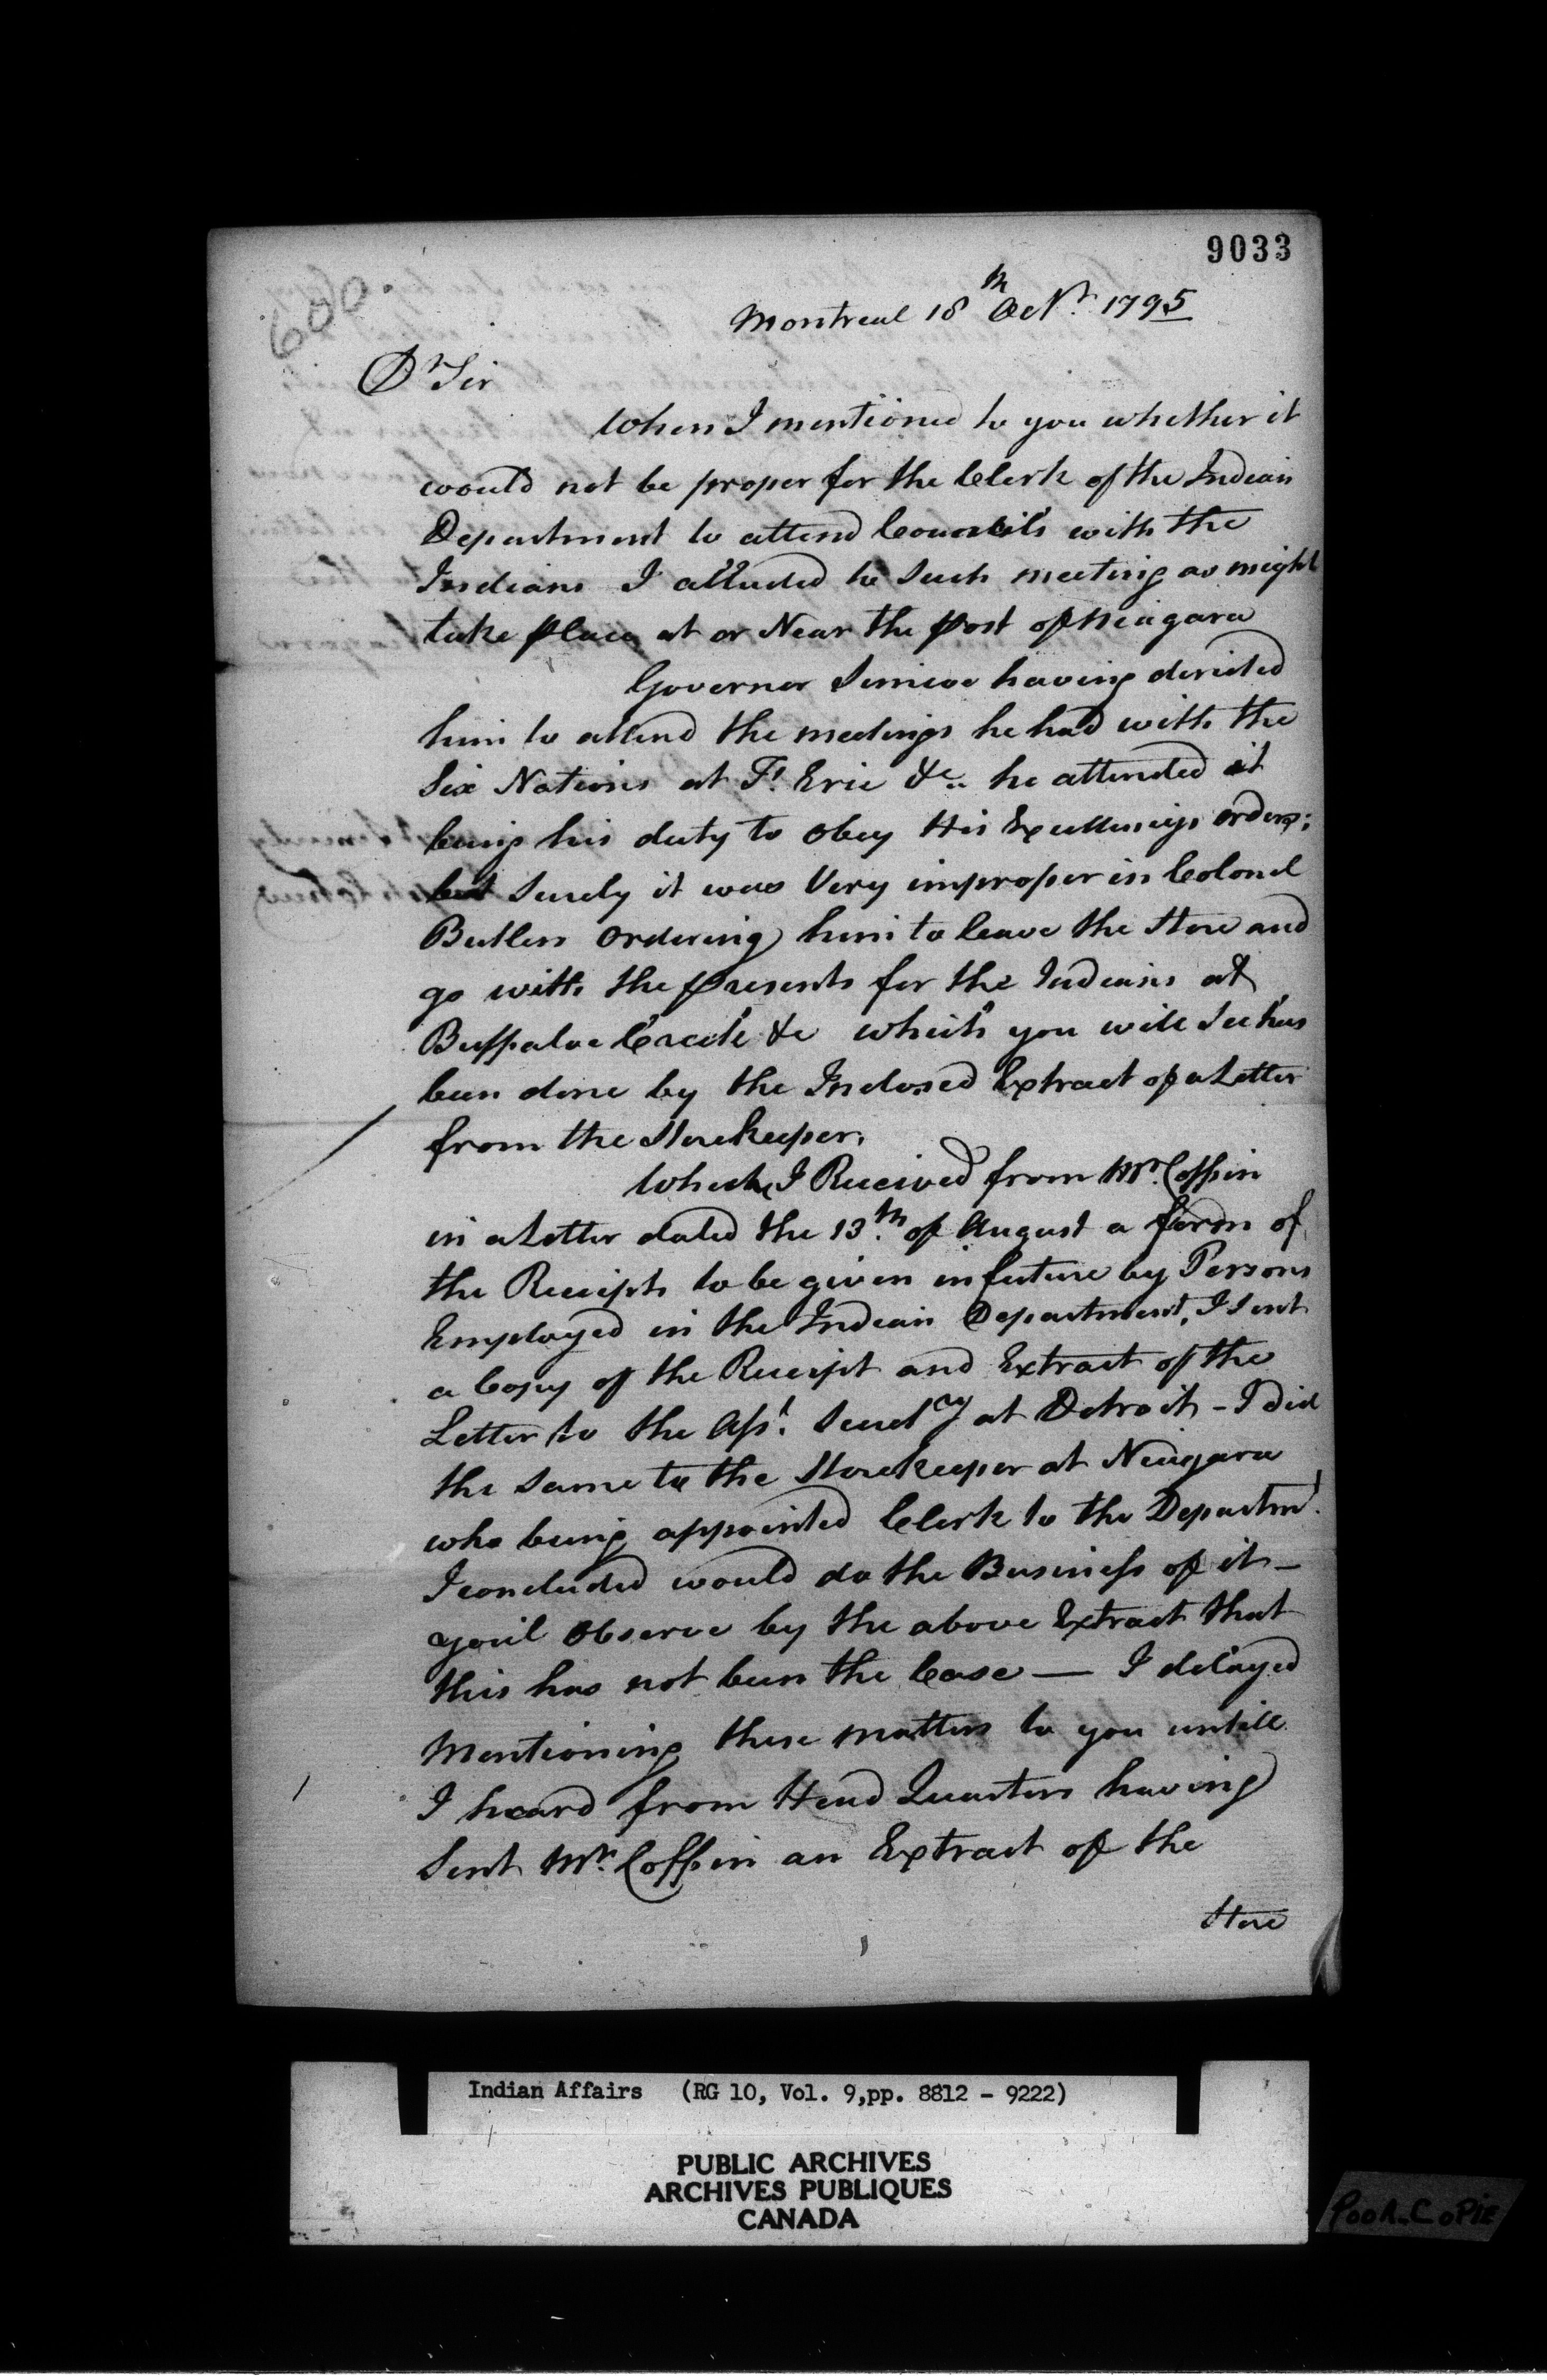 9033
600.
Montreal 18th Octr. 1795
Dr Sir
When I mentioned to you whether it
would not be proper for the Clerk of the Indian
Department to attend Councils with the
Indians I alluded to such meeting as might
take place at or Near the post of Niagara
Governor Simcoe having dericted
him to attend the meetings he had with the
Six Nations at Ft. Erie &c. he attended it
being his duty to Obey His Excellencys orders;
but surely it was Very improper in Colonel
Butlers Ordering him to leave the Store and
go with the presents for the Indians at
Buffaloe Creek &c which you will see has
been done by the Inclosed Extract of a Letter
from the Storekeeper.
When I Received from Mr. Coffin
in a Letter dated the 13th. of August a form of
the Receipts to be given in future by Persons
Employed in the Indian Department, I sent
a Copy of the Receipt and Extract of the
Letter to the Asst. Secrety at Detroit - I did
the same to the Storekeeper at Niagara
who being appointed Clerk to the Departmt.
I concluded would do the Business of it -
youl Observe by the above Extract that
this has not been the Case — I delayed
Mentioning these matters to you untill
I heard from Head Quarters having
Sent Mr. Coffin an Extract of the
Store
Indian Affairs (RG 10, Vol. 9,pp. 8812 - 9222)
PUBLIC ARCHIVES
ARCHIVES PUBLIQUES
CANADA
POOR COPIE